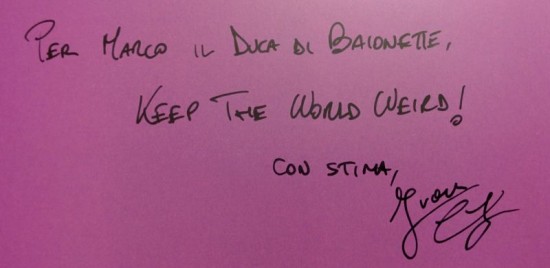 PER MARCO IL DUCA DI BAIONETTE,
KEEP THE WORLD WEIRD!
CON STIMA,